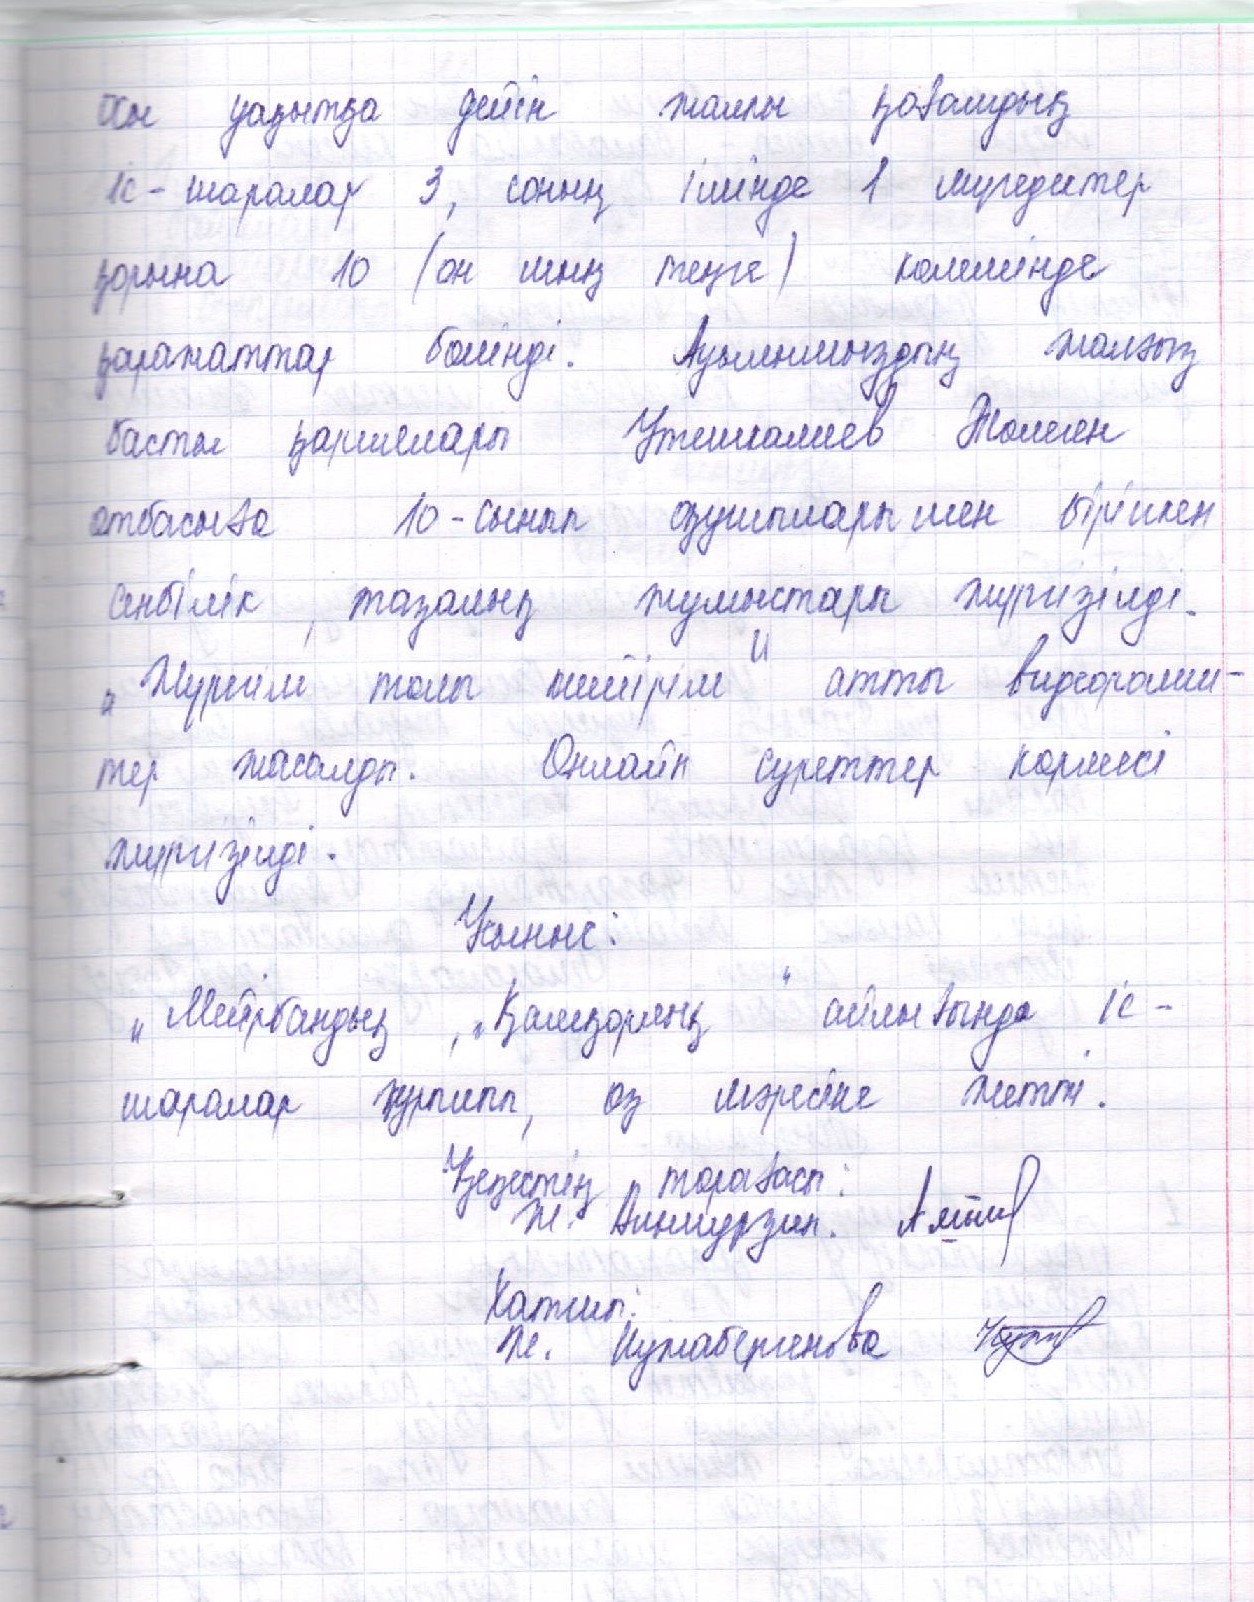 Осы уақытқа дейін жалпы қоғамдық
іс-шаралар 3, соның ішінде 1 мүгедектер
қорына 10 (он мың теңге) көлемінде
қаражаттар бөлінді. Ауылымыздың жалғыз
басты қариялары Утешкалиев Жолмен
отбасыға 10-сынып оқушыларымен біріккен
сенбілік, тазалық жұмыстары жүргізілді.
„Жүрегім толы мейірім" атты видеоролик-
тер жасалды. Онлайн суреттер көрмесі
жүргізілді.
Ұсыныс:
„Мейірбандық, „Қамқорлық" айлығында іс-
шаралар құрылып, өз мәресіне жетті.
Кеңестің төрағасы:
Ж. Динмурзин.
Хатшы:
Ж. Нұмабергенова